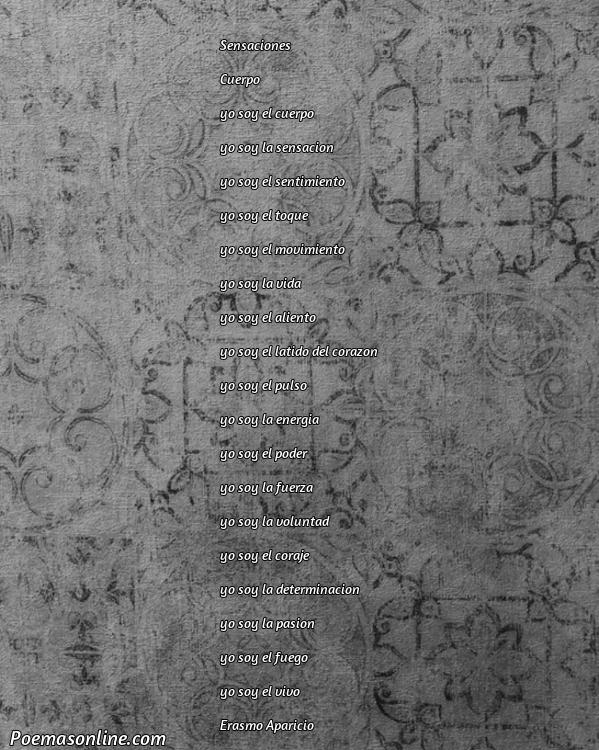 Sensaciones
Cuerpo
yo soy el cuerpo
yo soy la sensacion
yo soy el sentimiento
yo soy el toque
yo soy el movimiento
yo soy la vida
yo soy el aliento
yo soy el latido del corazon
yo soy el pulso
yo soy la energia
yo soy el poder
yo soy la fuerza
yo soy la voluntad
yo soy el coraje
yo soy la determinacion
yo soy la pasion
yo soy el fuego
yo soy el vivo
Erasmo Aparicio
Poemasonline.com